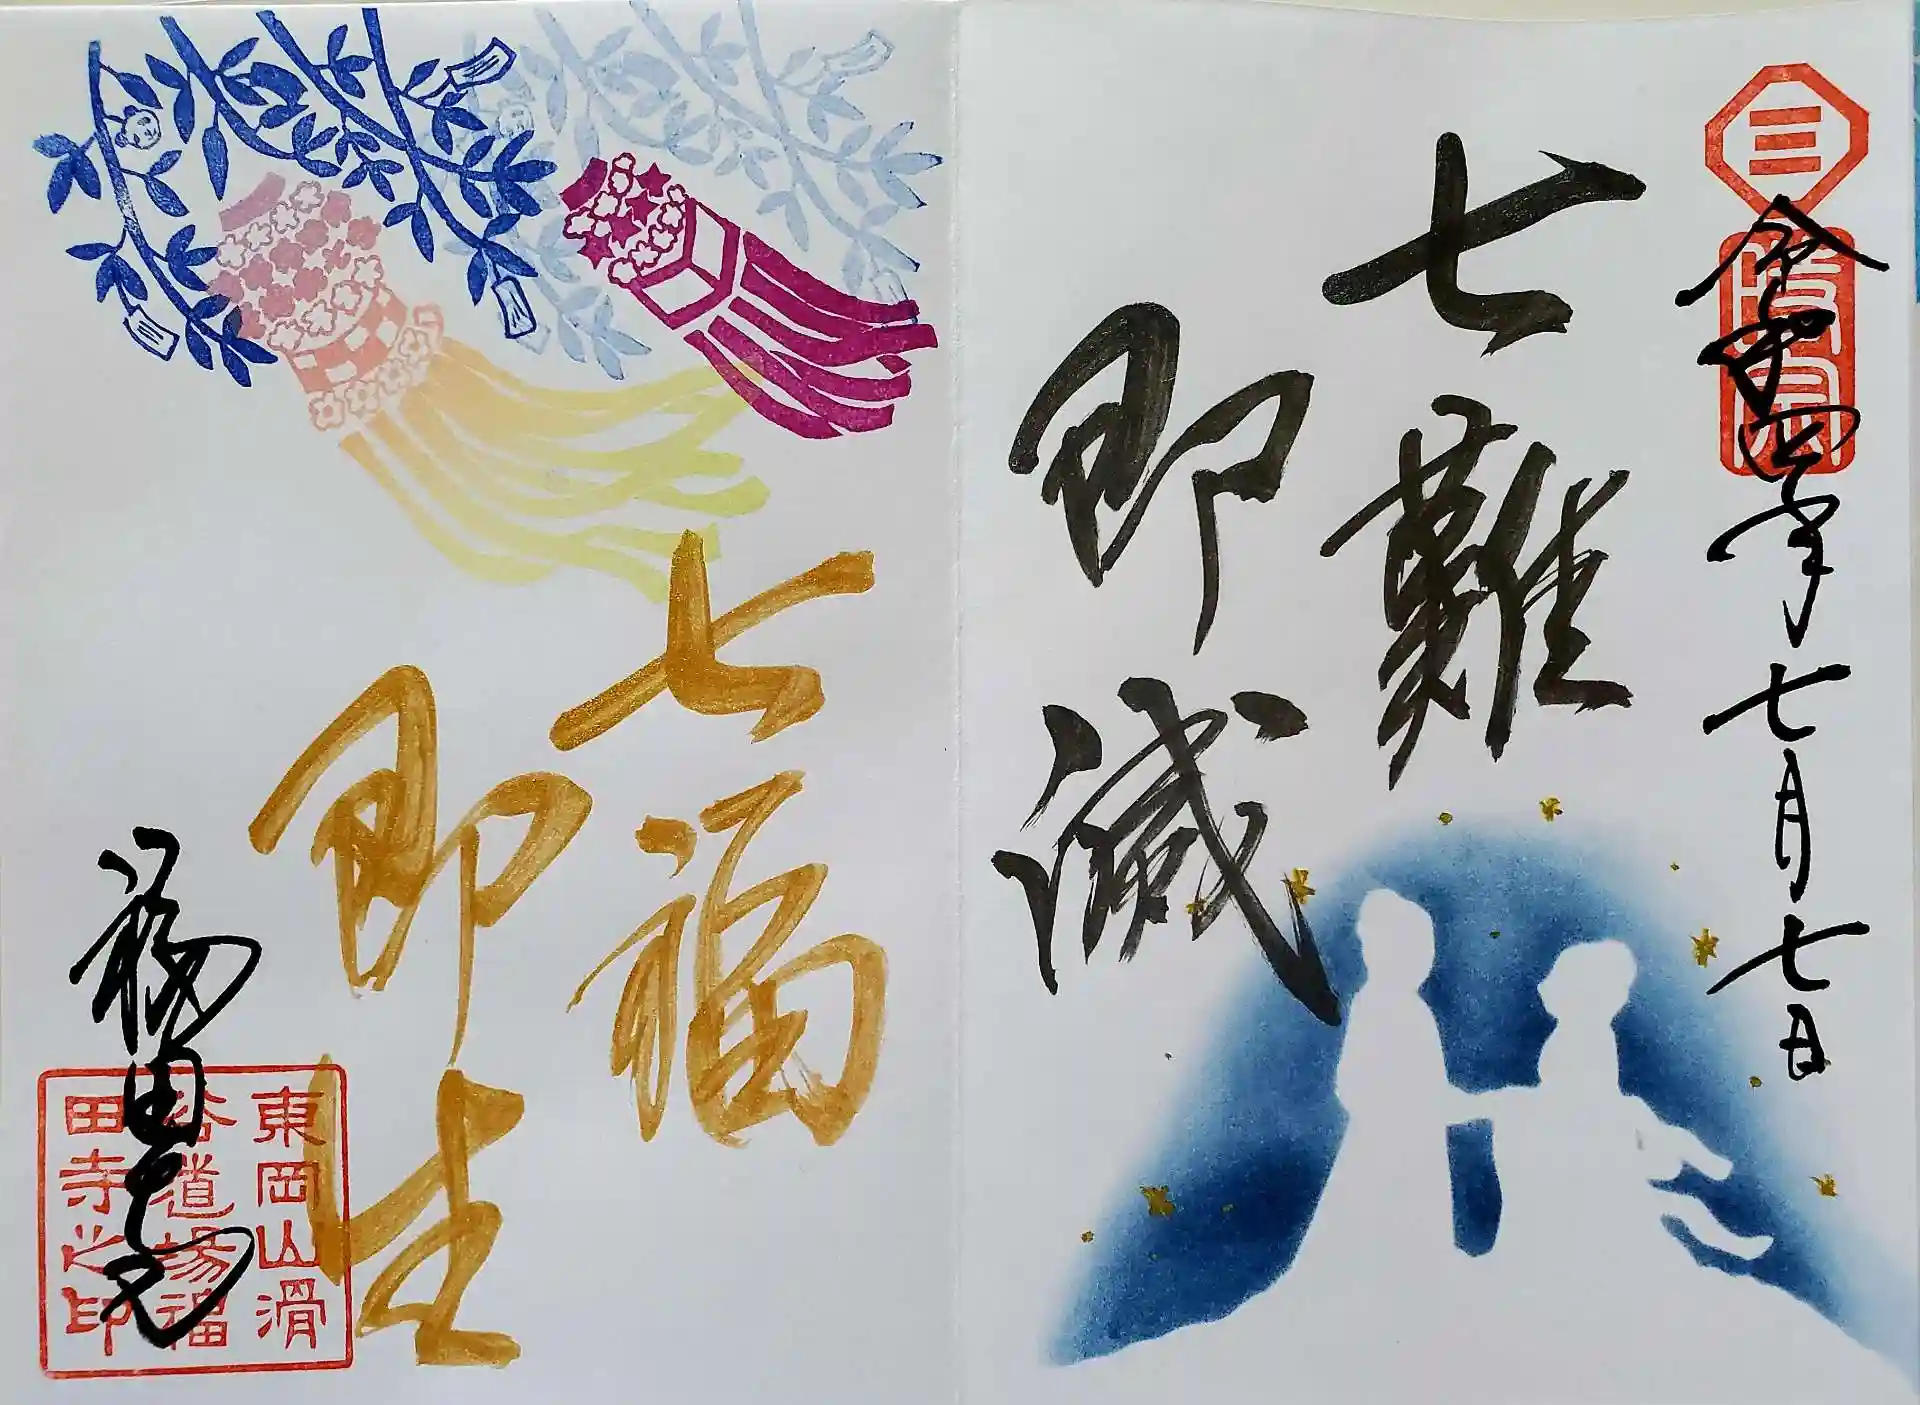 三
時宗
令和四年七月七日
七難
即滅
七福
即生
福田寺
東岡山滑
谷道場福
田寺之印